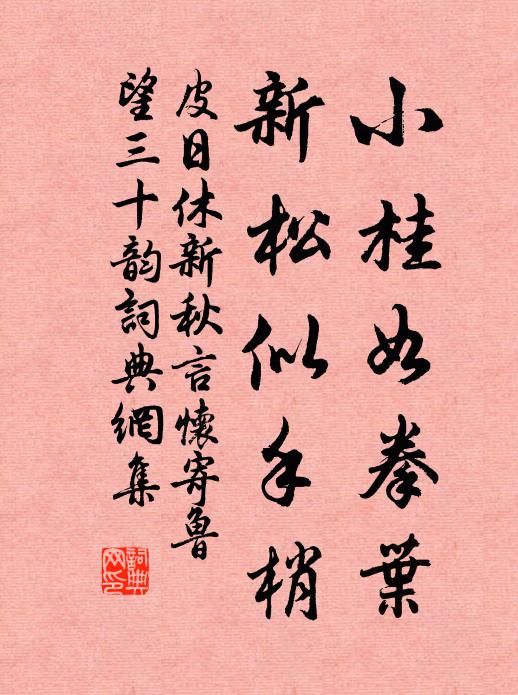 小桂如拳葉
新松似手梢
皮日休新秋言懷寄魯
望三十韵詞典網集
詞典
网印